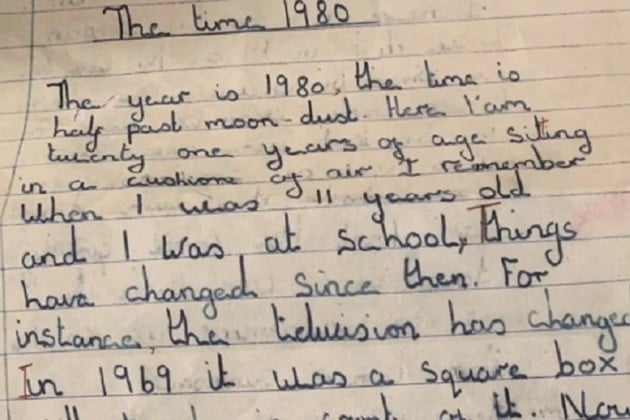 The time 1980
The year is 1980, the time is
half past moon-dust. Here I'am
twenty one years of age sitting
in a of air I remember
When I was 11 years old
and I was at school, Things
have changed since then. For
instance, the television has changed
In 1969 it was a square box
it. Now